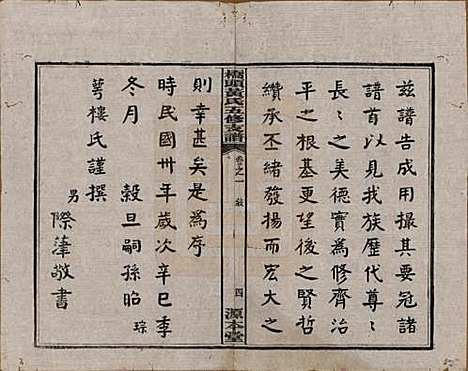 茲譜告成用撮其要冠諸
譜首以見我族歷代尊〻
長〻之美德實為修齊治
平之根基更望後之賢哲
纘承丕緒發揚而宏大之
橋頭黃氏五修支譜
卷之一 敘
四
源本堂
則幸甚矣是為序
時民國卅年歲次辛巳季
冬月 穀旦嗣孫昭琮
萼樓氏謹撰
男 際華敬書